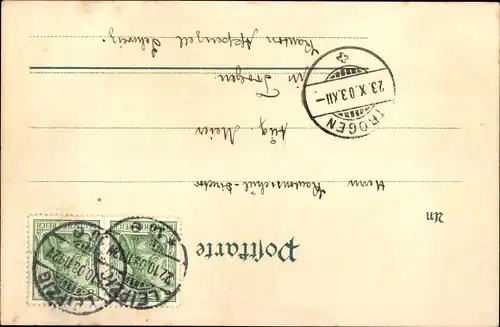 Postkarte
An
Herrn Kantonsschul-Director
Aug. Meier
in Trogen
Kanton Appenzell Schweiz.
TROGEN
23.X.03.XII-
LEIPZIG
22.10.03
LEIPZIG
22.10.03